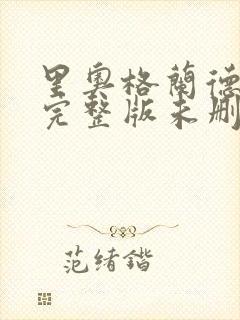 里奥格蘭德
完整版未删
范绪锴